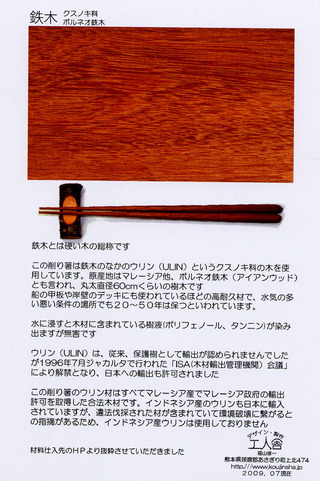 鉄木 クスノキ科
ボルネオ鉄木
鉄木とは硬い木の総称です
この削り箸は鉄木のなかのウリン（ULIN）というクスノキ科の木を使
用しています。原産地はマレーシア他、ボルネオ鉄木（アイアンウッド）
とも言われ、丸太直径60cmくらいの樹木です
船の甲板や岸壁のデッキにも使われているほどの高耐久材で、水気の多
い悪い条件の場所でも２０～５０年は保つといわれています。
水に浸すと木材に含まれている樹液(ポリフェノール、タンニン)が染み
出ますが無害です
ウリン（ULIN）は、従来、保護樹として輸出が認められませんでした
が1996年7月ジャカルタで行われた「ISA(木材輸出管理機関）会議」
により解禁となり、日本への輸出も許可されました
この削り箸のウリン材はすべてマレーシア産でマレーシア政府の輸出
許可を取得した合法木材です。インドネシア産のウリンも日本に輸入
されていますが、違法伐採された材が含まれていて環境破壊に繋がると
の指摘があるため、インドネシア産ウリンは使用しておりません
材料仕入先のHPより抜粋させていただきました
デザイン・製作
工人舎
熊本県球磨郡あさぎり町上北474
http://www.koujinsha.jp
2009.07現在